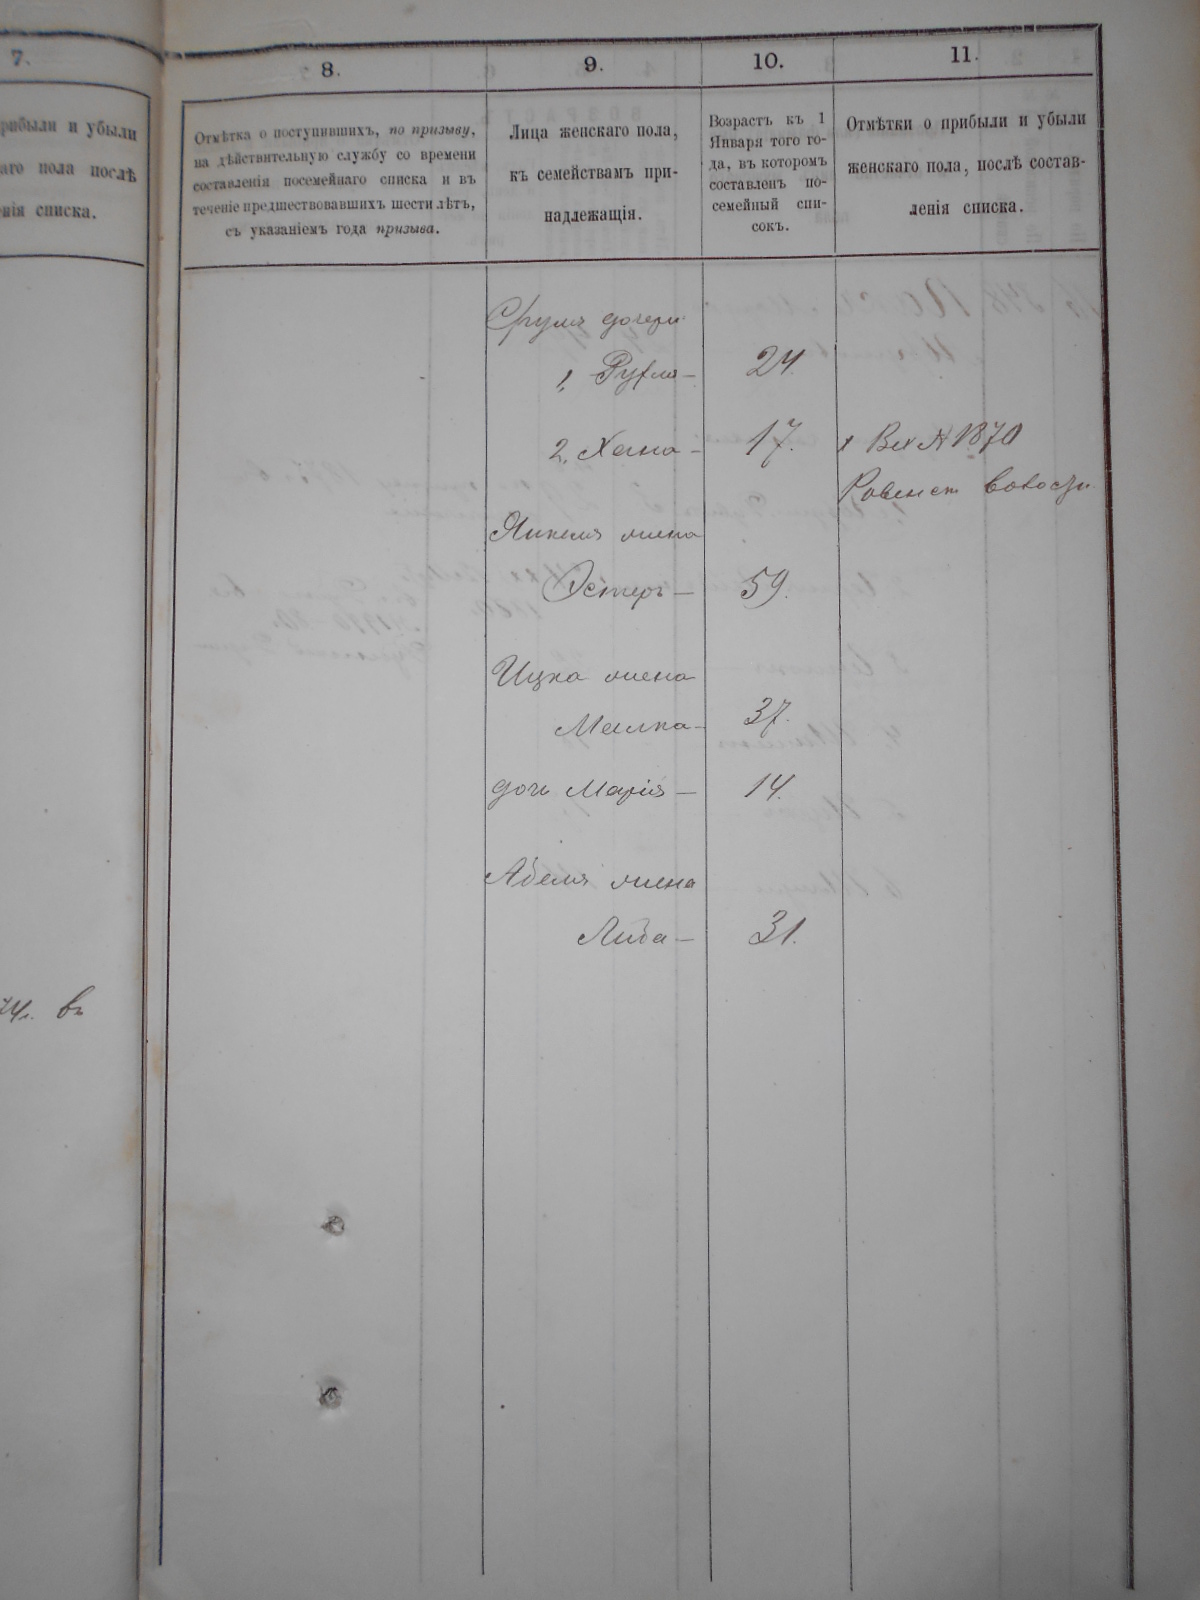 7.
рибыли и убыли
аго пола послѣ
нія списка.
74г. въ
8.
9.
10.
11.
Отмѣтка о поступившихъ, по призыву,
на дѣйствительную службу со времени
составленія посемейнаго списка и въ
теченіе предшествовавшихъ шести лѣтъ,
съ указаніемъ года призыва.
Лица женскаго пола,
къ семействамъ при-
надлежащія.
Возрастъ къ 1
Января того го-
да, въ которомъ
составленъ по-
семейный спи-
сокъ.
Отмѣтки о прибыли и убыли
женскаго пола, послѣ состав-
ленія списка.
Сруля дочери
1, Рухля — 24.
2, Хана — 17. х Вх № 1870
Янкеля жена
Эстеръ — 59.
Ицка жена
Малка — 37.
дочь Марія — 14.
Абеля жена
Либа — 31.